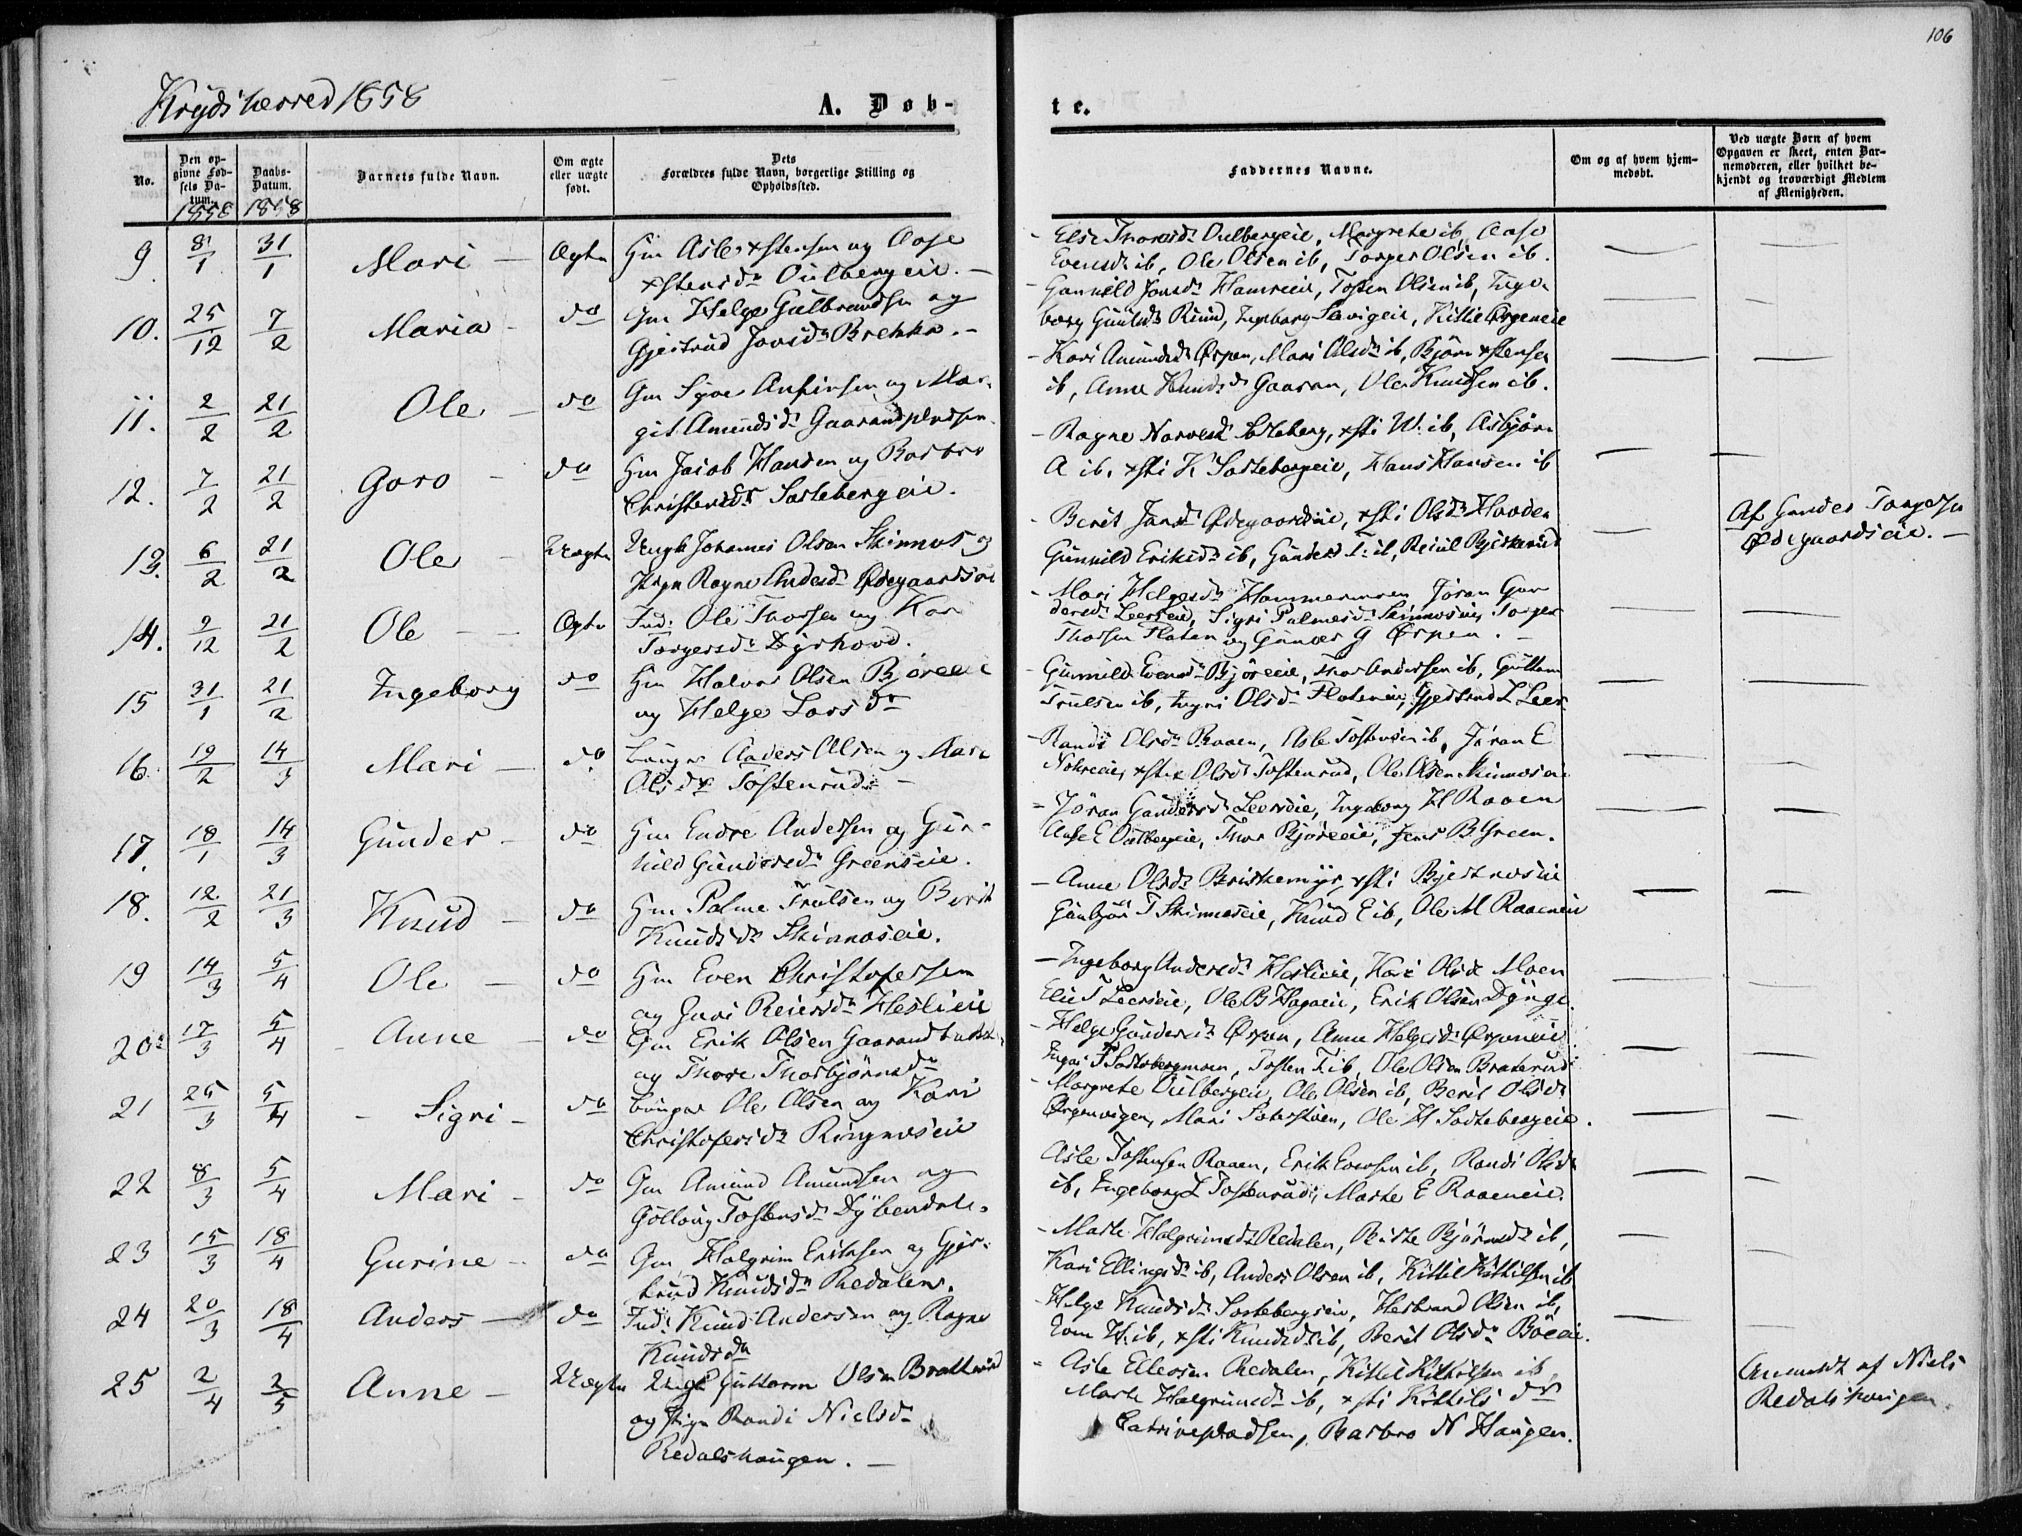 106
Krydsherred 1858
A. Døb-
te.
No.
Den opgivne Fødsels Datum.
1858
Daabs-Datum.
1858
Barnets fulde Navn.
Om ægte eller uægte født.
Dets Forældres fulde Navn, borgerlige Stilling og Opholdssted.
Faddernes Navne.
Om og af hvem hjemmedøbt.
Ved uægte Børn af hvem Opgaven er skeet, enten Barnemoderen, eller hvilket bekjendt og troværdigt Medlem af Menigheden.
9 8/1 31/1 Mari — Ægte Hm Asle xstensen og Aase
xstensdr Oulbergeie. —
Else Thoresdr Oulbergeie, Margrete ib, Aase
Evensdr ib, Ole Olsen ib, Torger Olsen ib.
10. 25/12 7/2 Maria - do Gm Helge Gulbrandsen og
Gjertrud Jonsdr Brekke. —
Gunnild Jonsdr Hamreeie, Tosten Olsen ib, Inge-
borg Gunulds Ruud, Ingeborg Sevigeie, Kittil Ørgeneie
11. 2/2 21/2 Ole — do Gm Syver Anfinsen og Mar-
git Amundsdr Gaarandpladsen.
- Kari Amundsdr Ørpen, Mari Olsdr ib, Bjørn xstensen
ib, Anne Knudsdr Gaaran, Ole Knudsen ib.
12. 7/2 21/2 Goro - do Hm Jacob Hansen og Barbro
Christensdr Sortebergeie.
- Ragne Narvesdr Sorteberg, xsti W. ib, Asbjørn
A ib, xsti K Sortebergeie, Hans Hansen ib
13. 6/2 21/2 Ole - Uægte Ungk Johannes Olsen Skinnes og
Pigen Ragne Andersdr Ødegaardseie
- Berit Jansdr Ødegaardseie, xsti Olsdr Hovden
Gunnild Eriksdr ib, Gunder T. ib, Reiul Bjerkerud
Af Gunder Torgersen
Ødegaardseie. —
14. 9/12 21/2 Ole — Ægte Ind: Ole Thorsen og Kari
Torgersdr Dyrhovd.
- Mari Helgesdr Hammermoen, Jøran Gun-
dersdr Leerseie, Sigri Palmesdr Skinneseie, Torger
Thorsen Flaten og Gunder G Ørpen. —
15 31/1 21/2 Ingeborg do Hm Halvor Olsen Bjøreeie
og Helge Larsdr
- Gunnild Evensdr Bjøreeie, Thor Andersen ib, Guttorm
Truelsen ib, Ingri Olsdr Flateneie, Gjertrud L Leer-
16. 19/2 14/3 Mari — do. Anders Olsen og Kari
Olsdr Tostenrud. —
- Randi Olsdr Raaen, Asle Tostensen ib, Jøran E
xsti Olsdr Tostenrud, Ole Olsen Skinneseie
17. 18/1 14/3 Gunder - do Hm Endre Andersen og Gun-
hild Gundersdr Greenseie.
- Jøran Gundersdr Leerseie, Ingeborg H Raaen
Aase E Oulbergeie, Thor Bjøreeie, Jens B Green.
18. 12/2 21/3 Knud - do Hm Palme Truelsen og Berit
Knudsdr Skinneseie.
- Anne Olsdr Briskemyr, xsti Bjertneseie
Gunbjør T Skinneseie, Knud E ib, Ole M Raaeneie
19 14/3 5/4 Ole — do Hm Even Christofersen
og Guri Reiersdr Heslieie
- Ingeborg Andersdr Heslieie, Kari Olsdr Moen
Elie T Leerseie, Ole B Hagaeie, Erik Olsen Dynge.
20. 17/3 5/4 Anne - do Gm Erik Olsen
og Thore Thorbjørnsdr
- Helge Gundersdr Ørpen, Anne Helgesdr Ørpeneie.
Ingri T Sortebergmoen, Tosten T ib, Ole Olsen Braaterud
21 25/3 5/4 - Sigri - do Ole Olsen og Kari
Christofersdr Ringneseie
- Margrete Oulbergeie, Ole Olsen ib, Berit Olsdr
Ørgenvigen, Mari Ole H Sortebergeie.
22 8/3 5/4 Mari - do Gm Amund Amundsen og
Gollaug Tostensdr Dybendal.
Asle Tostensen Raaen, Erik Evensen ib, Randi Olsdr
ib, Ingeborg L Tostenrud, Marte E Raaeneie.
23 15/3 18/4 Gurine - do Gm Halgrim Eriksen og Gjer-
trud Knudsdr Redalen.
- Marte Halgrimsdr Redalen, Birte Bjørnsdr ib,
Kari Ellingsdr ib, Anders Olsen ib, Kittil Kittilsen ib
24 20/3 18/4 Anders — do Ind: Knud Andersen og Ragne
Knudsdr
- Helge Knudsdr Sortebergeie, Herbrand Olsen ib,
Even H. ib, xsti Knudsdr ib, Berit Olsdr Bøeeie.
25 2/4 2/5 Anne — Uægte Ungk Guttorm Olsen Bratterud
og Pige Randi Nielsdr
Redalshaugen. —
- Asle Ellevsen Redalen, Kittil Kittilsen ib,
Marte Halgrimsdr ib, xsti Kittilsdr
Catrinepladsen, Barbro N Haugen.
Anmeldt af Niels
Redalshaugen.